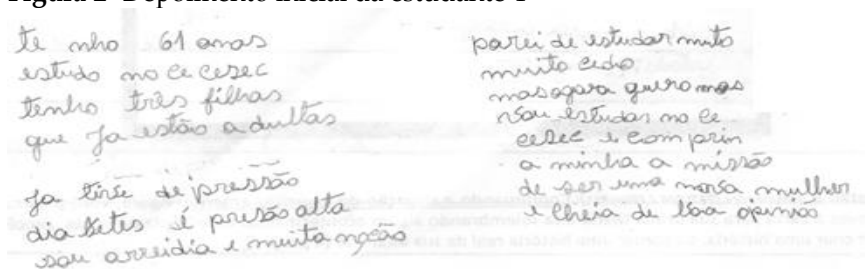 Figura 2- Depoimento inicial da estudante 1
te nho 61 anos
estudo no ce cesec
tenho três filhas
que ja estão adultas
ja tive de pressão
dia betes é presão alta
sou arreidia e muita
parei de estudar muto
muito cedo
mas agora quero mas
vou estudar no ce
cesec e com prin
a minha a missão
de ser uma mova mulher
cheia de boa opinião